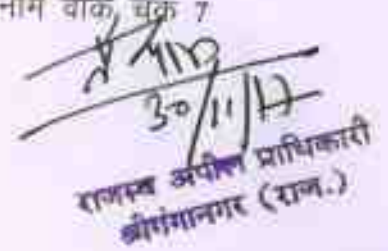 नाम वाक चक 7
30/11/17
राजस्व अपील प्राधिकारी
श्रीगंगानगर (राज.)